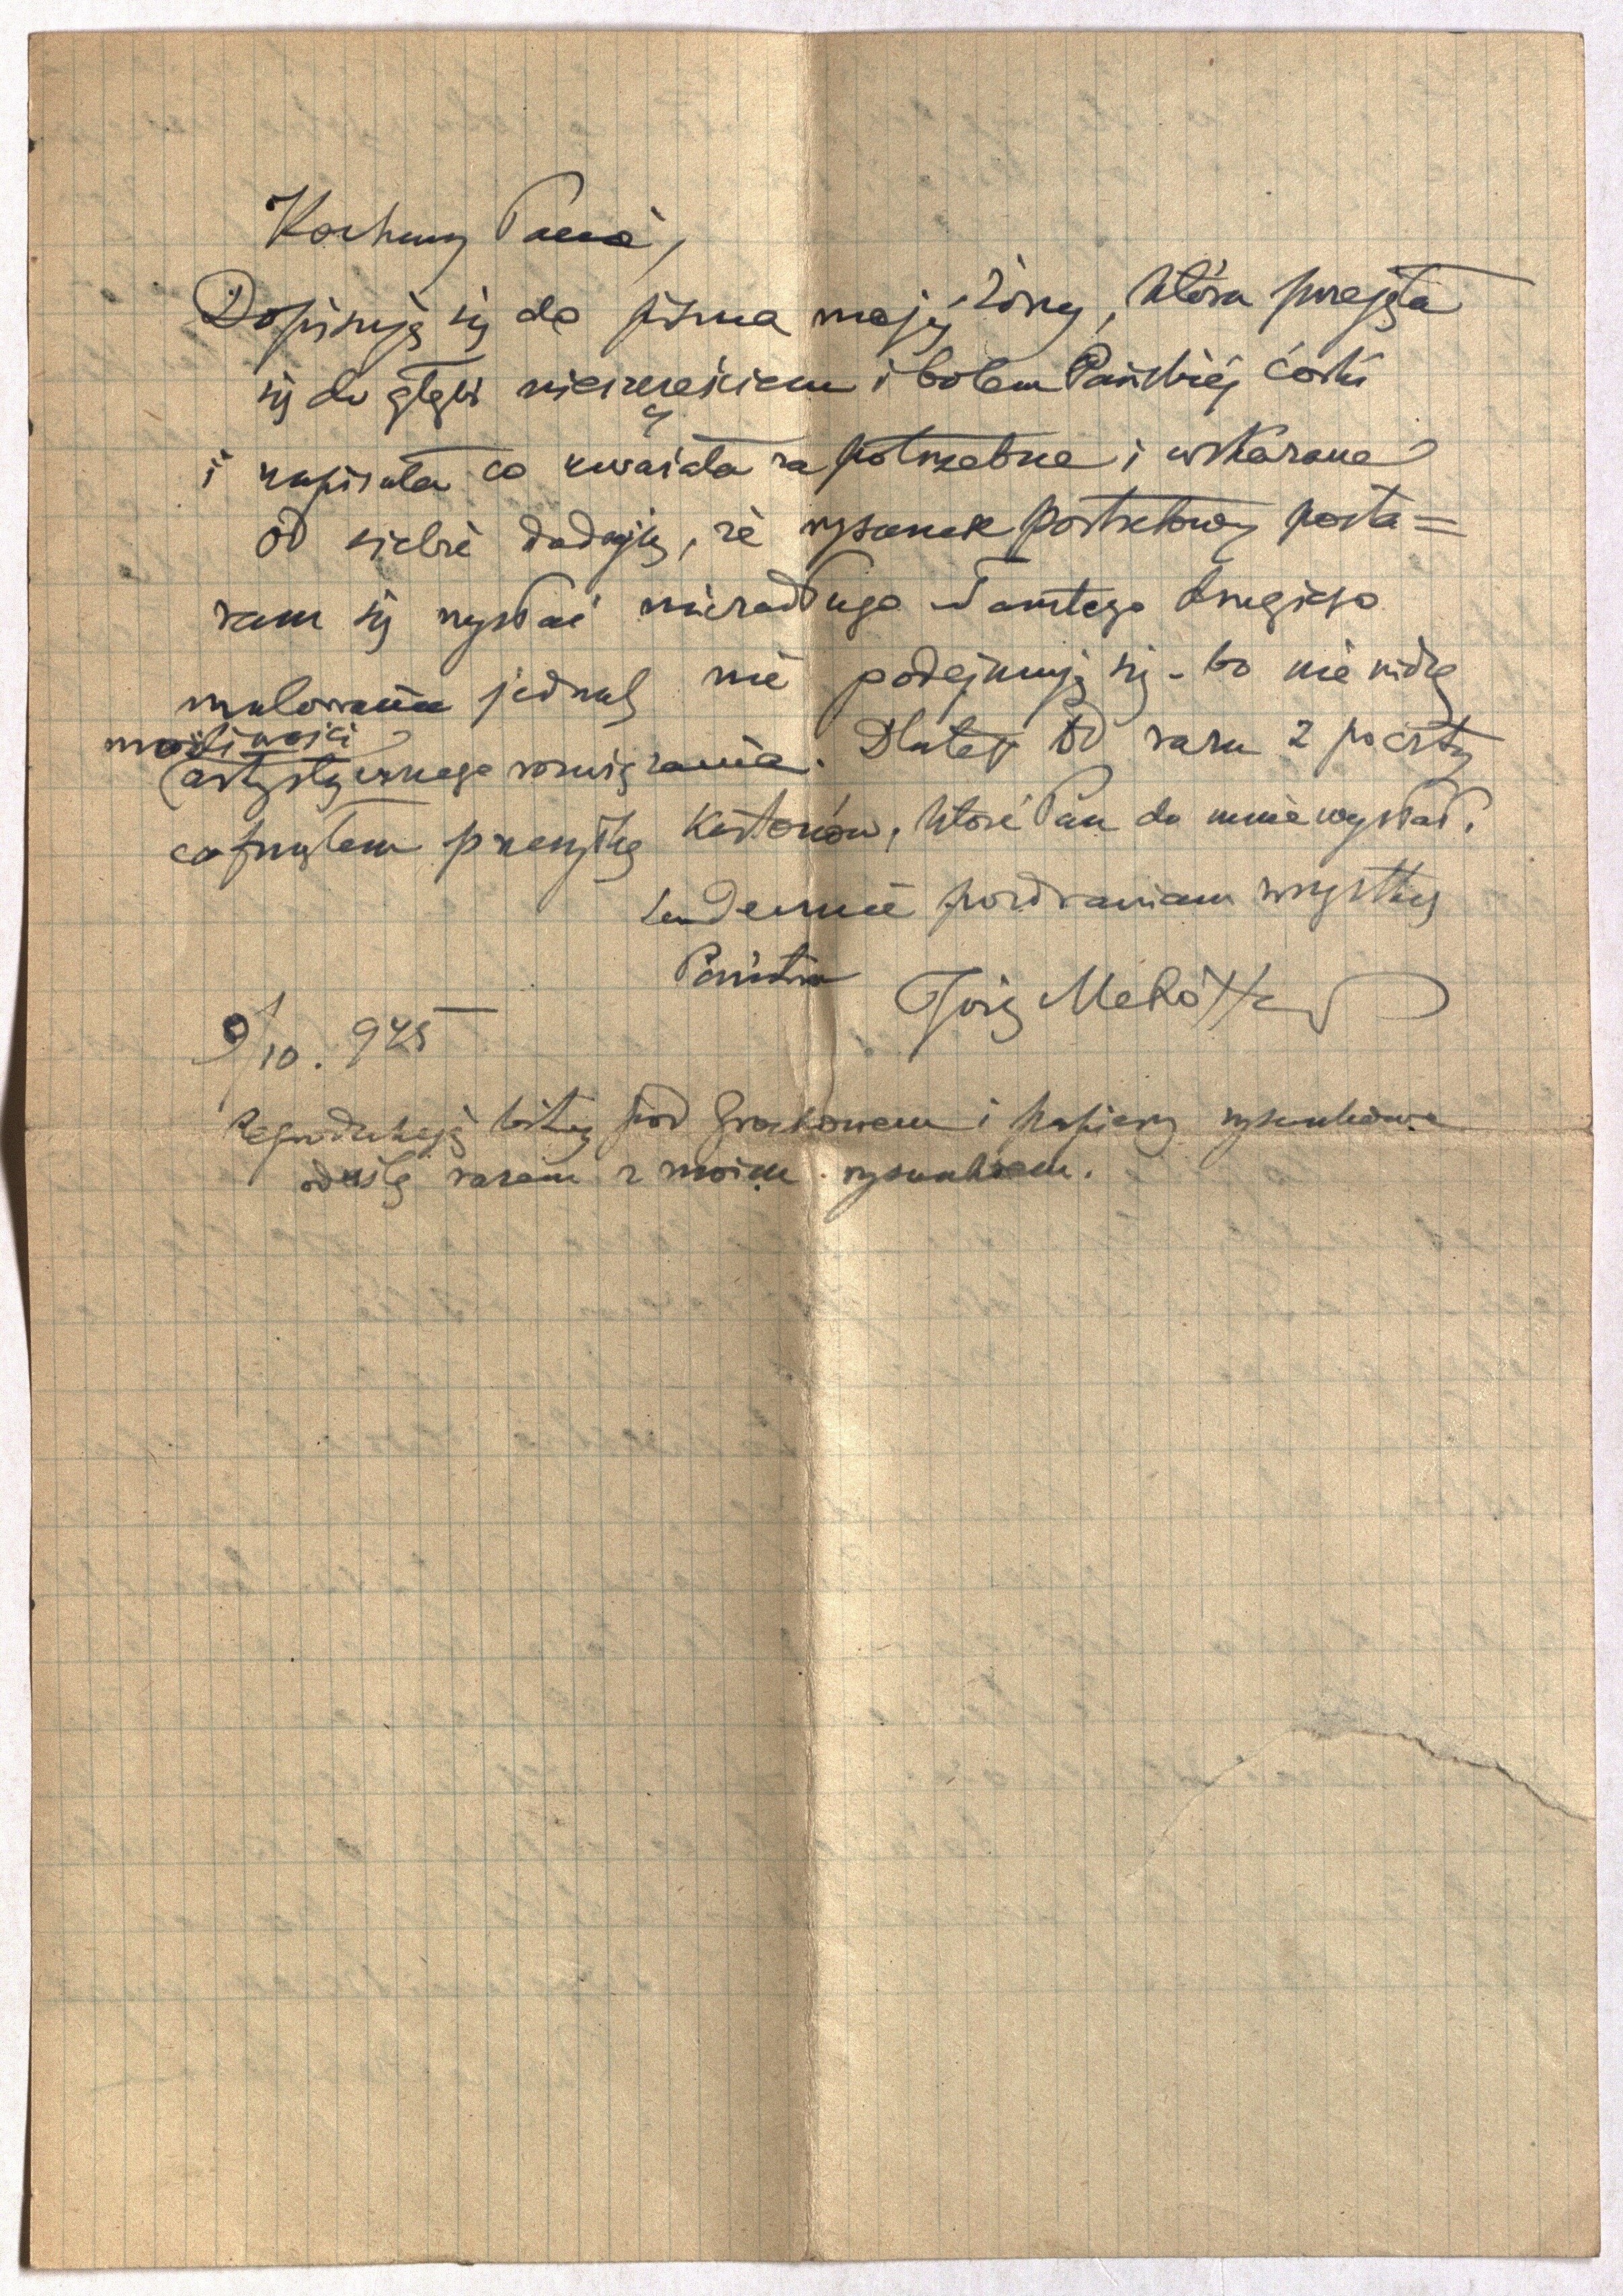 Kochany Panie,
Dopisuję się do pisma mojej żony, która przejęła
się do głębi nieszczęściem i bolem Pańskiej córki
i napisała co uważała za potrzebne i wskazane
od siebie dodaję, że rysunek portretowy posta=
ram się wysłać niezadługo. Tamtego drugiego
malowania jednak nie podejmuję się - bo nie widzę
możliwości
artystycznego rozwiązania. Dlatego od razu z poczty
cofnąłem przesyłkę kartonów, które Pan do mnie wysłał.
Serdecznie pozdrawiam wszystkich
Państwa
9/10. 945
Reprodukcję bitwy pod Grochowem i papiery rysunkowe
odeślę razem z moim rysunkiem.